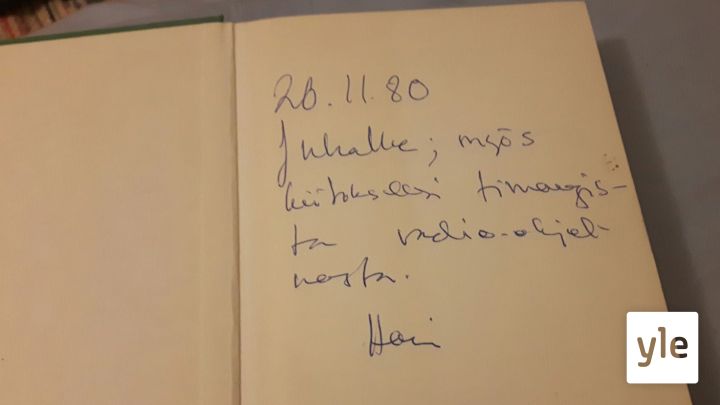 26.11.80
Juhalle; myös
kiitokseksi timangis-
ta radio-ohjel-
masta.
yle